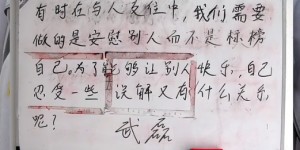 有时在与人交往中,我们需要
做的是安慰别人而不是标榜
自己。为了能够让别人快乐,自己
忍受一些误解又有什么关系
呢?
武磊